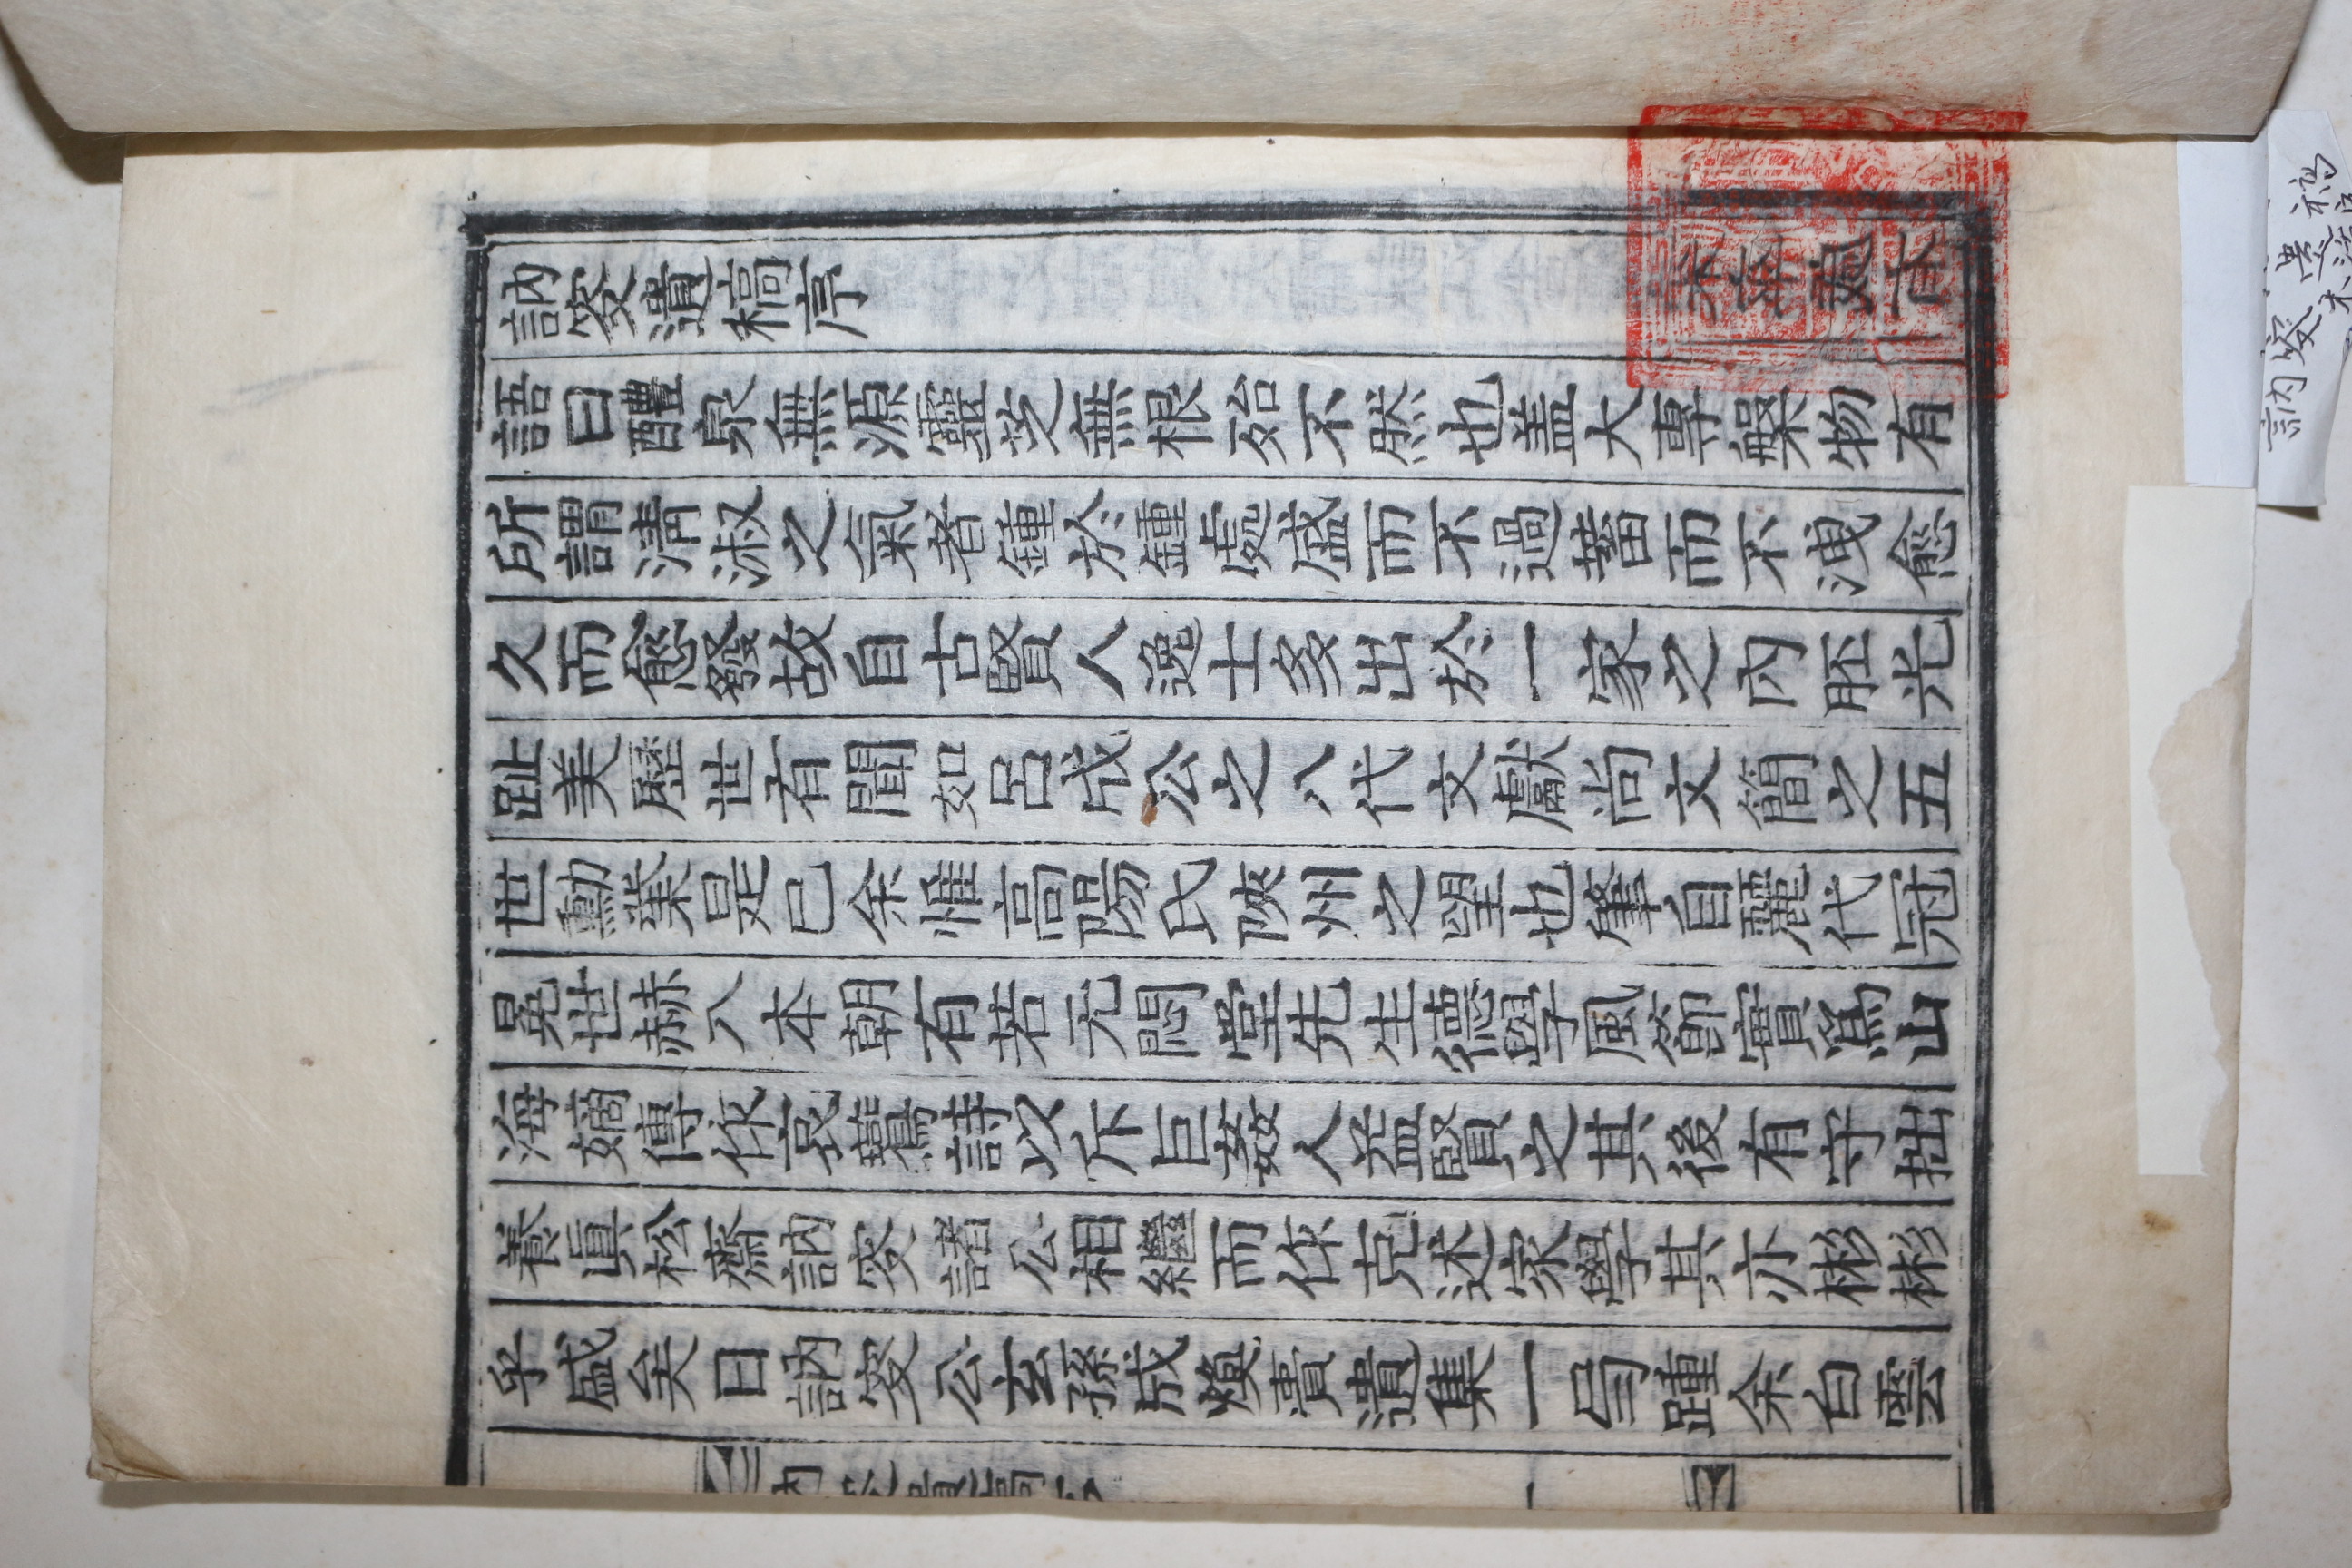 訥窔遺稿序
語曰醴泉無源靈芝無根殆不然也盖大專槃物有
所謂淸淑之氣者鍾於鍾處盛而不過蓄而不洩愈
久而愈發故自古賢人逸士多出於一家之內胚光
趾美歷世有聞如呂成公之八代文獻尚文簡之五
世勳業是已余惟高陽氏陜州之望也肇自麗代冠
冕世赫入本朝有若无悶堂先生德學風節實爲山
海嫡傳作哀鷰詩以斥巨姦人益賢之其後有守拙
養眞松齋訥窔諸公相繼而作克述家學其亦彬彬
乎盛矣日訥窔公玄孫成煥賷遺集一局踵余白雲
一
訥窔遺稿